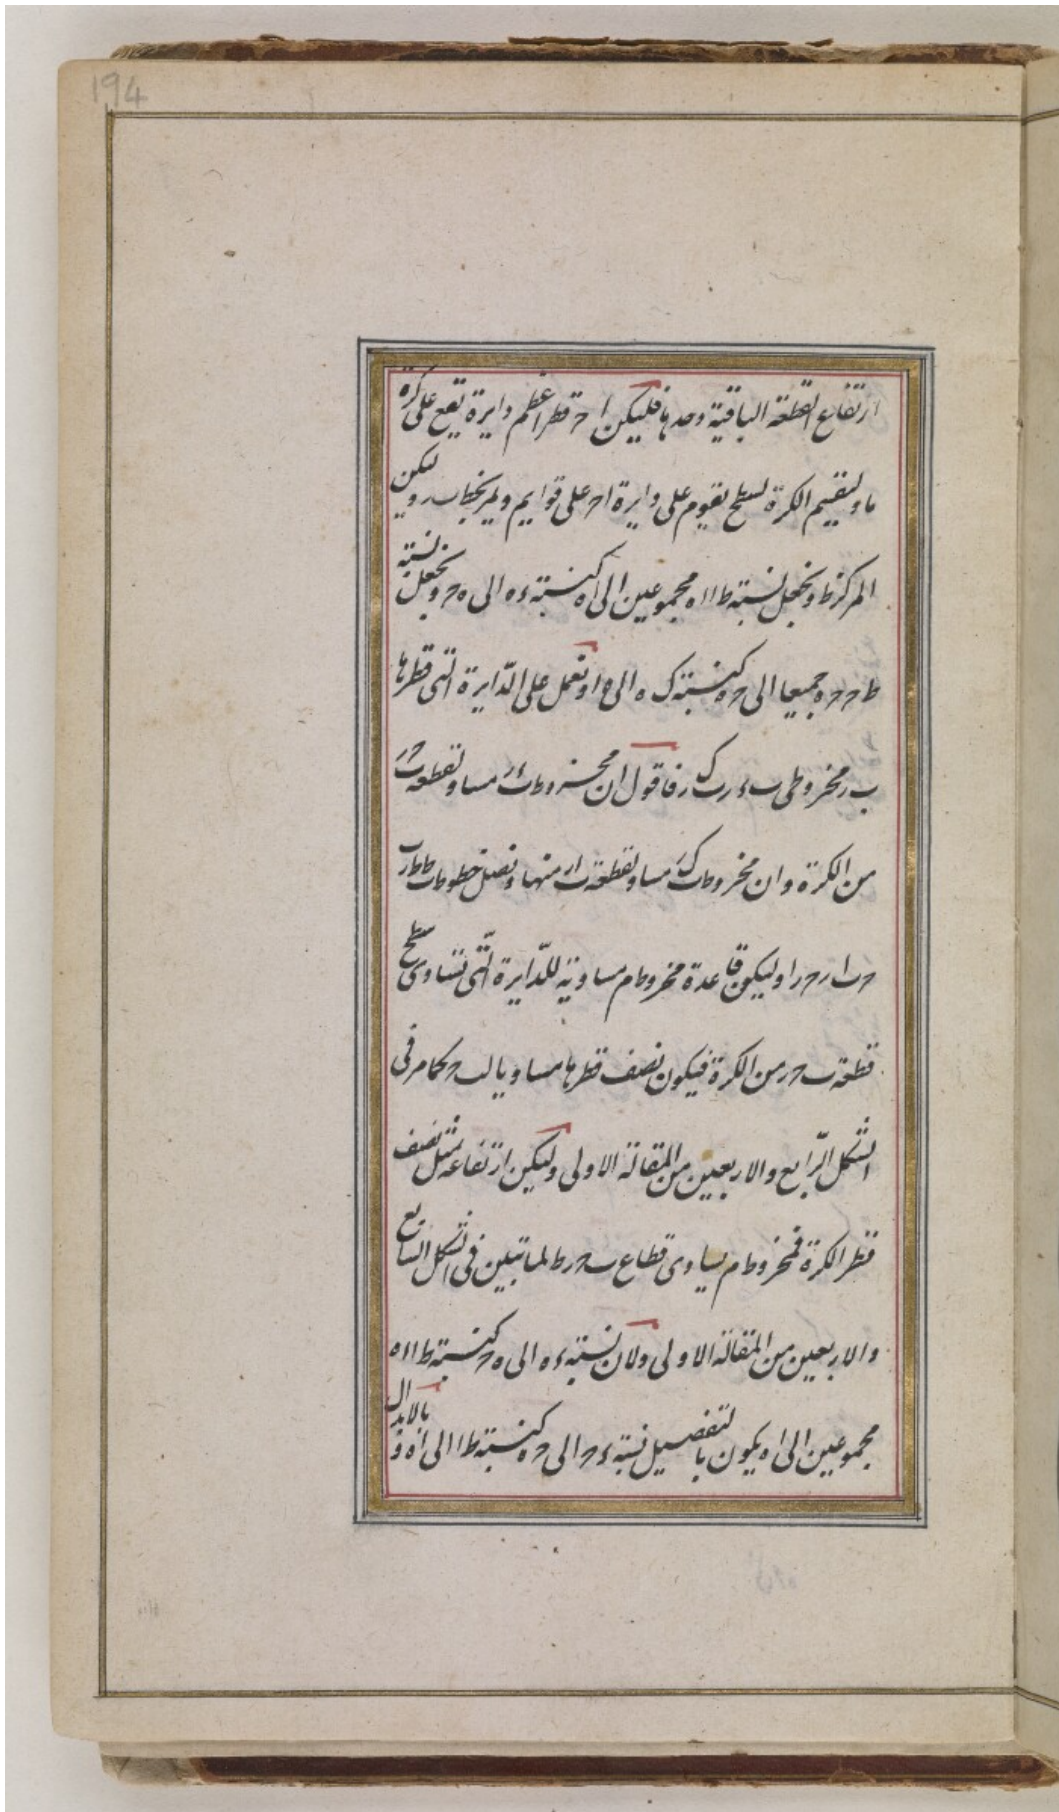 194
ارتفاع القطعة الباقية وحدها فليكن ا ح قطر اعظم دايرة يقع على كرة
ما وليقسم الكرة بسطح يقوم على دايرة ا ح على قوايم ويمر بخط ب ر وليكن
المركز ط ونجعل نسبة ط ا ا ه مجموعين الى ا ه كنسبة ء ه الى ه ح ونجعل نسبة
ط ح ح ه جميعا الى ح ه كنسبة ك ه الى ه ا ونعمل على الدايرة التى قطرها
ب ر مخروطى ب ء ر ب ك ر فاقول ان مخروط ب ء ر مساو لقطعة ب ح ر
من الكرة وان مخروط ب ك ر مساو لقطعة ب ا ر منها ونصل خطوط ب ط ط ر
ح ب ا ر ح ر ا وليكون قاعدة مخروط م مساوية للدايرة التى تساوى سطح
قطعة ب ح ر من الكرة فيكون نصف قطرها مساويا لب ح كما مر فى
الشكل الرابع والاربعين من المقالة الاولى وليكن ارتفاعه مثل نصف
قطر الكرة فمخروط م يساوى قطاع ب ح ر ط لما تبين فى الشكل السابع
والاربعين من المقالة الاولى ولان نسبة ء ه الى ه ح كنسبة ط ا ا ه
مجموعين الى ا ه يكون بالتفصيل نسبة ء ح الى ح ه كنسبة ط ا الى ا ه و بالابدال